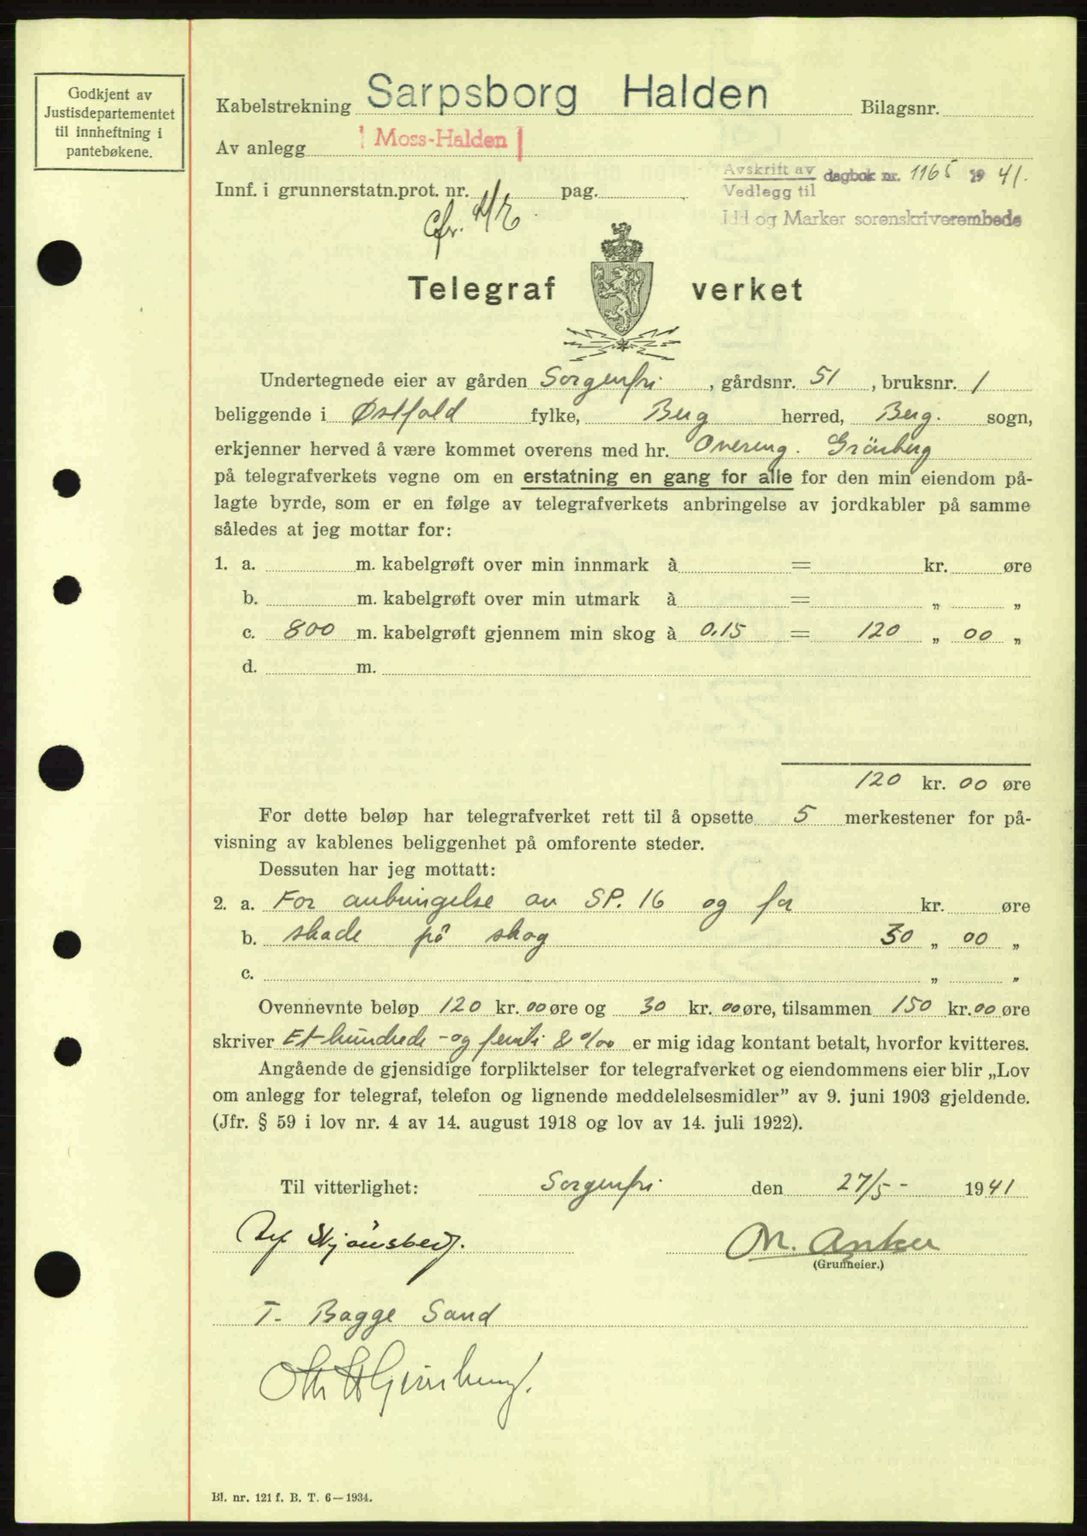 Godkjent av
Justisdepartementet
til innheftning i
pantebøkene.
Kabelstrekning Sarpsborg Halden Bilagsnr.
Av anlegg Moss-Halden
Avskrift av dagbok nr. 1165 1941.
Innf. i grunnerstatn.prot. nr. pag.
Vedlegg til
og Marker sorenskriverembede
Cfr.
Telegraf verket
Undertegnede eier av gården Sorgenfri, gårdsnr. 51, bruksnr. 1
beliggende i Østfold fylke, Berg herred, Berg. sogn,
erkjenner herved å være kommet overens med hr. Overing. Grönberg
på telegrafverkets vegne om en erstatning en gang for alle for den min eiendom på-
lagte byrde, som er en følge av telegrafverkets anbringelse av jordkabler på samme
således at jeg mottar for:
1. a. m. kabelgrøft over min innmark à = kr. øre
b. m. kabelgrøft over min utmark à = „ „
c. 800 m. kabelgrøft gjennem min skog à 0.15 = 120 „ 00 „
d. m.
120 kr. 00 øre
For dette beløp har telegrafverket rett til å opsette 5 merkestener for på-
visning av kablenes beliggenhet på omforente steder.
Dessuten har jeg mottatt:
2. a. For anbringelse av SP. 16 og for kr. øre
b. skade på skog 30 „ 00 „
c. „ „
Ovennevnte beløp 120 kr. 00 øre og 30 kr. 00 øre, tilsammen 150 kr. 00 øre
skriver Et hundrede - og femti & 0/00 er mig idag kontant betalt, hvorfor kvitteres.
Angående de gjensidige forpliktelser for telegrafverket og eiendommens eier blir „Lov
om anlegg for telegraf, telefon og lignende meddelelsesmidler” av 9. juni 1903 gjeldende.
(Jfr. § 59 i lov nr. 4 av 14. august 1918 og lov av 14. juli 1922).
Til vitterlighet: Sorgenfri den 27/5 - 1941
M. Anker
(Grunneier.)
T. Bagge Sand
Bl. nr. 121 f. B. T. 6—1934.